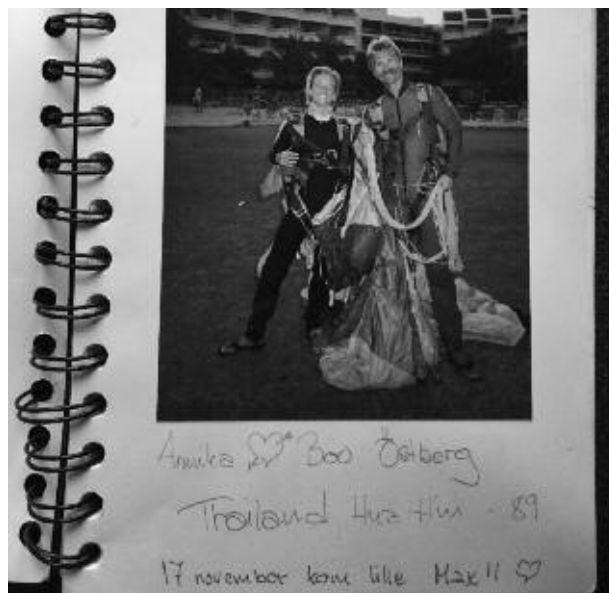 Annika ♡ Boo Östberg
Thailand, Hua Hin - 89
17 november kom lille Max!! ♡